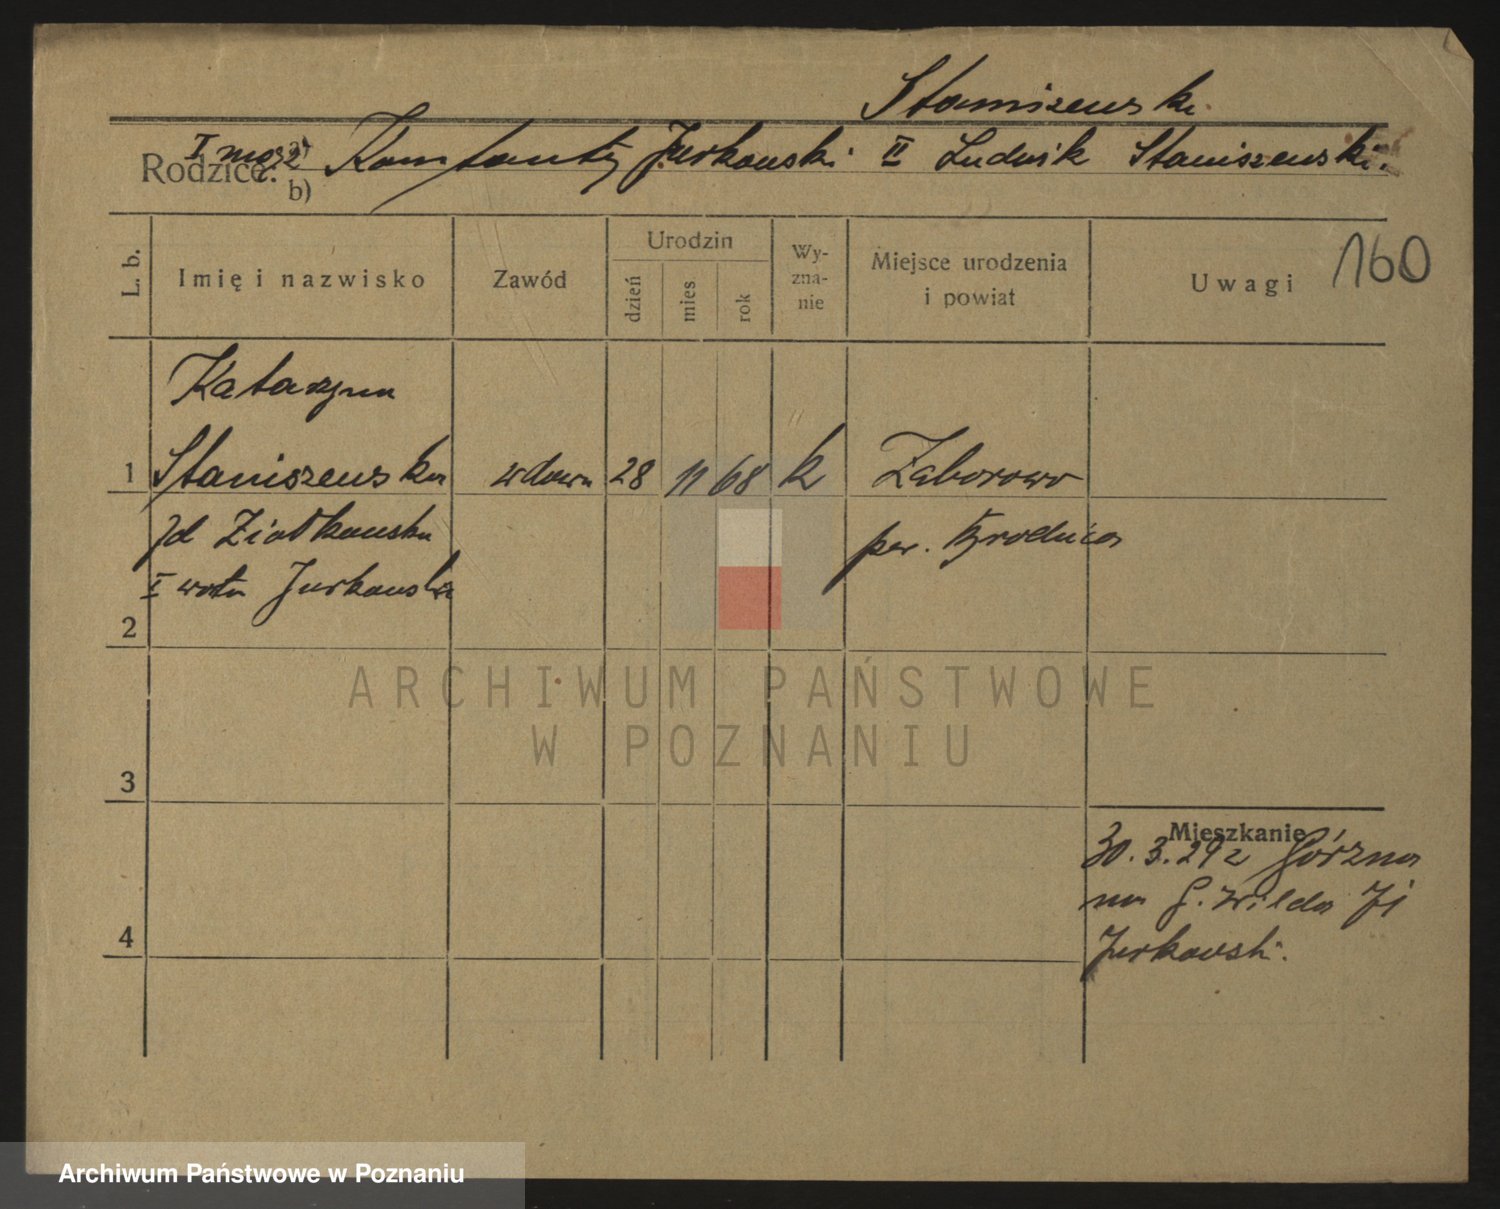 Staniszewska
I mąż Konstanty Jurkowski II Ludwik Staniszewski.
Rodzice: a)
b)
L. b.
Imię i nazwisko
Zawód
Urodzin
dzień
mies
rok
Wy-
zna-
nie
Miejsce urodzenia
i powiat
Uwagi
160
Katarzyna
1 Staniszewska wdowa 28 11 68 k Zaborowo
zd Ziółkowska pow. Brodnica
I voto Jurkowska
2
3
4
Mieszkanie
30.3.29 z Górzna
na G. Wilda 71
Jurkowski.
ARCHIWUM PAŃSTWOWE
W POZNANIU
Archiwum Państwowe w Poznaniu